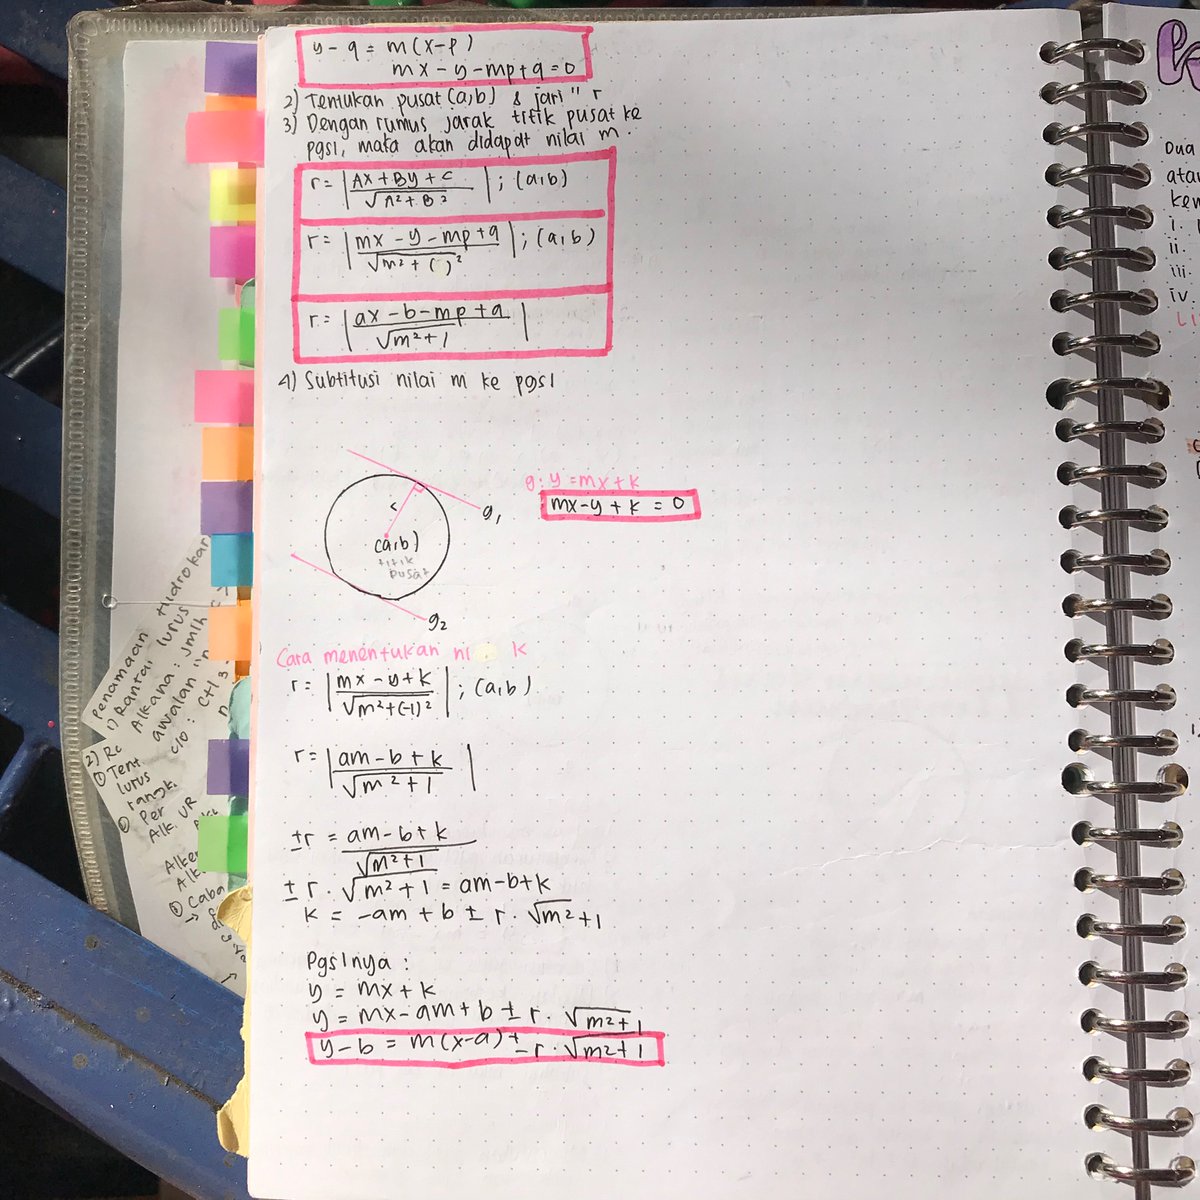 y - q = m(x-p)
mx - y - mp + q = 0
2) Tentukan pusat (a,b) & jari" r
3) Dengan rumus jarak titik pusat ke
pgsl, maka akan didapat nilai m.
r = |Ax + By + C / √A² + B²| ; (a,b)
r = |mx - y - mp + q / √m² + ( )²| ; (a,b)
r = |ax - b - mp + q / √m² + 1|
4) Subtitusi nilai m ke pgsl
g: y = mx + k
mx - y + k = 0
g₁
(a,b)
titik
pusat
g₂
Cara menentukan ni k
r = |mx - y + k / √m² + (-1)²| ; (a,b)
r = |am - b + k / √m² + 1|
±r = am - b + k / √m² + 1
± r . √m² + 1 = am - b + k
k = -am + b ± r . √m² + 1
Pgslnya :
y = mx + k
y = mx - am + b ± r . √m² + 1
y - b = m(x-a) ± r . √m² + 1
Penamaan Hidrokar
1) Rantai lurus
Alkana : jmlh C
awalan "n
c/o :
2) Rc
① Tent
lurus
rangk.
② Per
Alk. UR
Alke
Alk
③ Caba
Dua
atau
kew
i.
ii.
iii.
iv.
Li